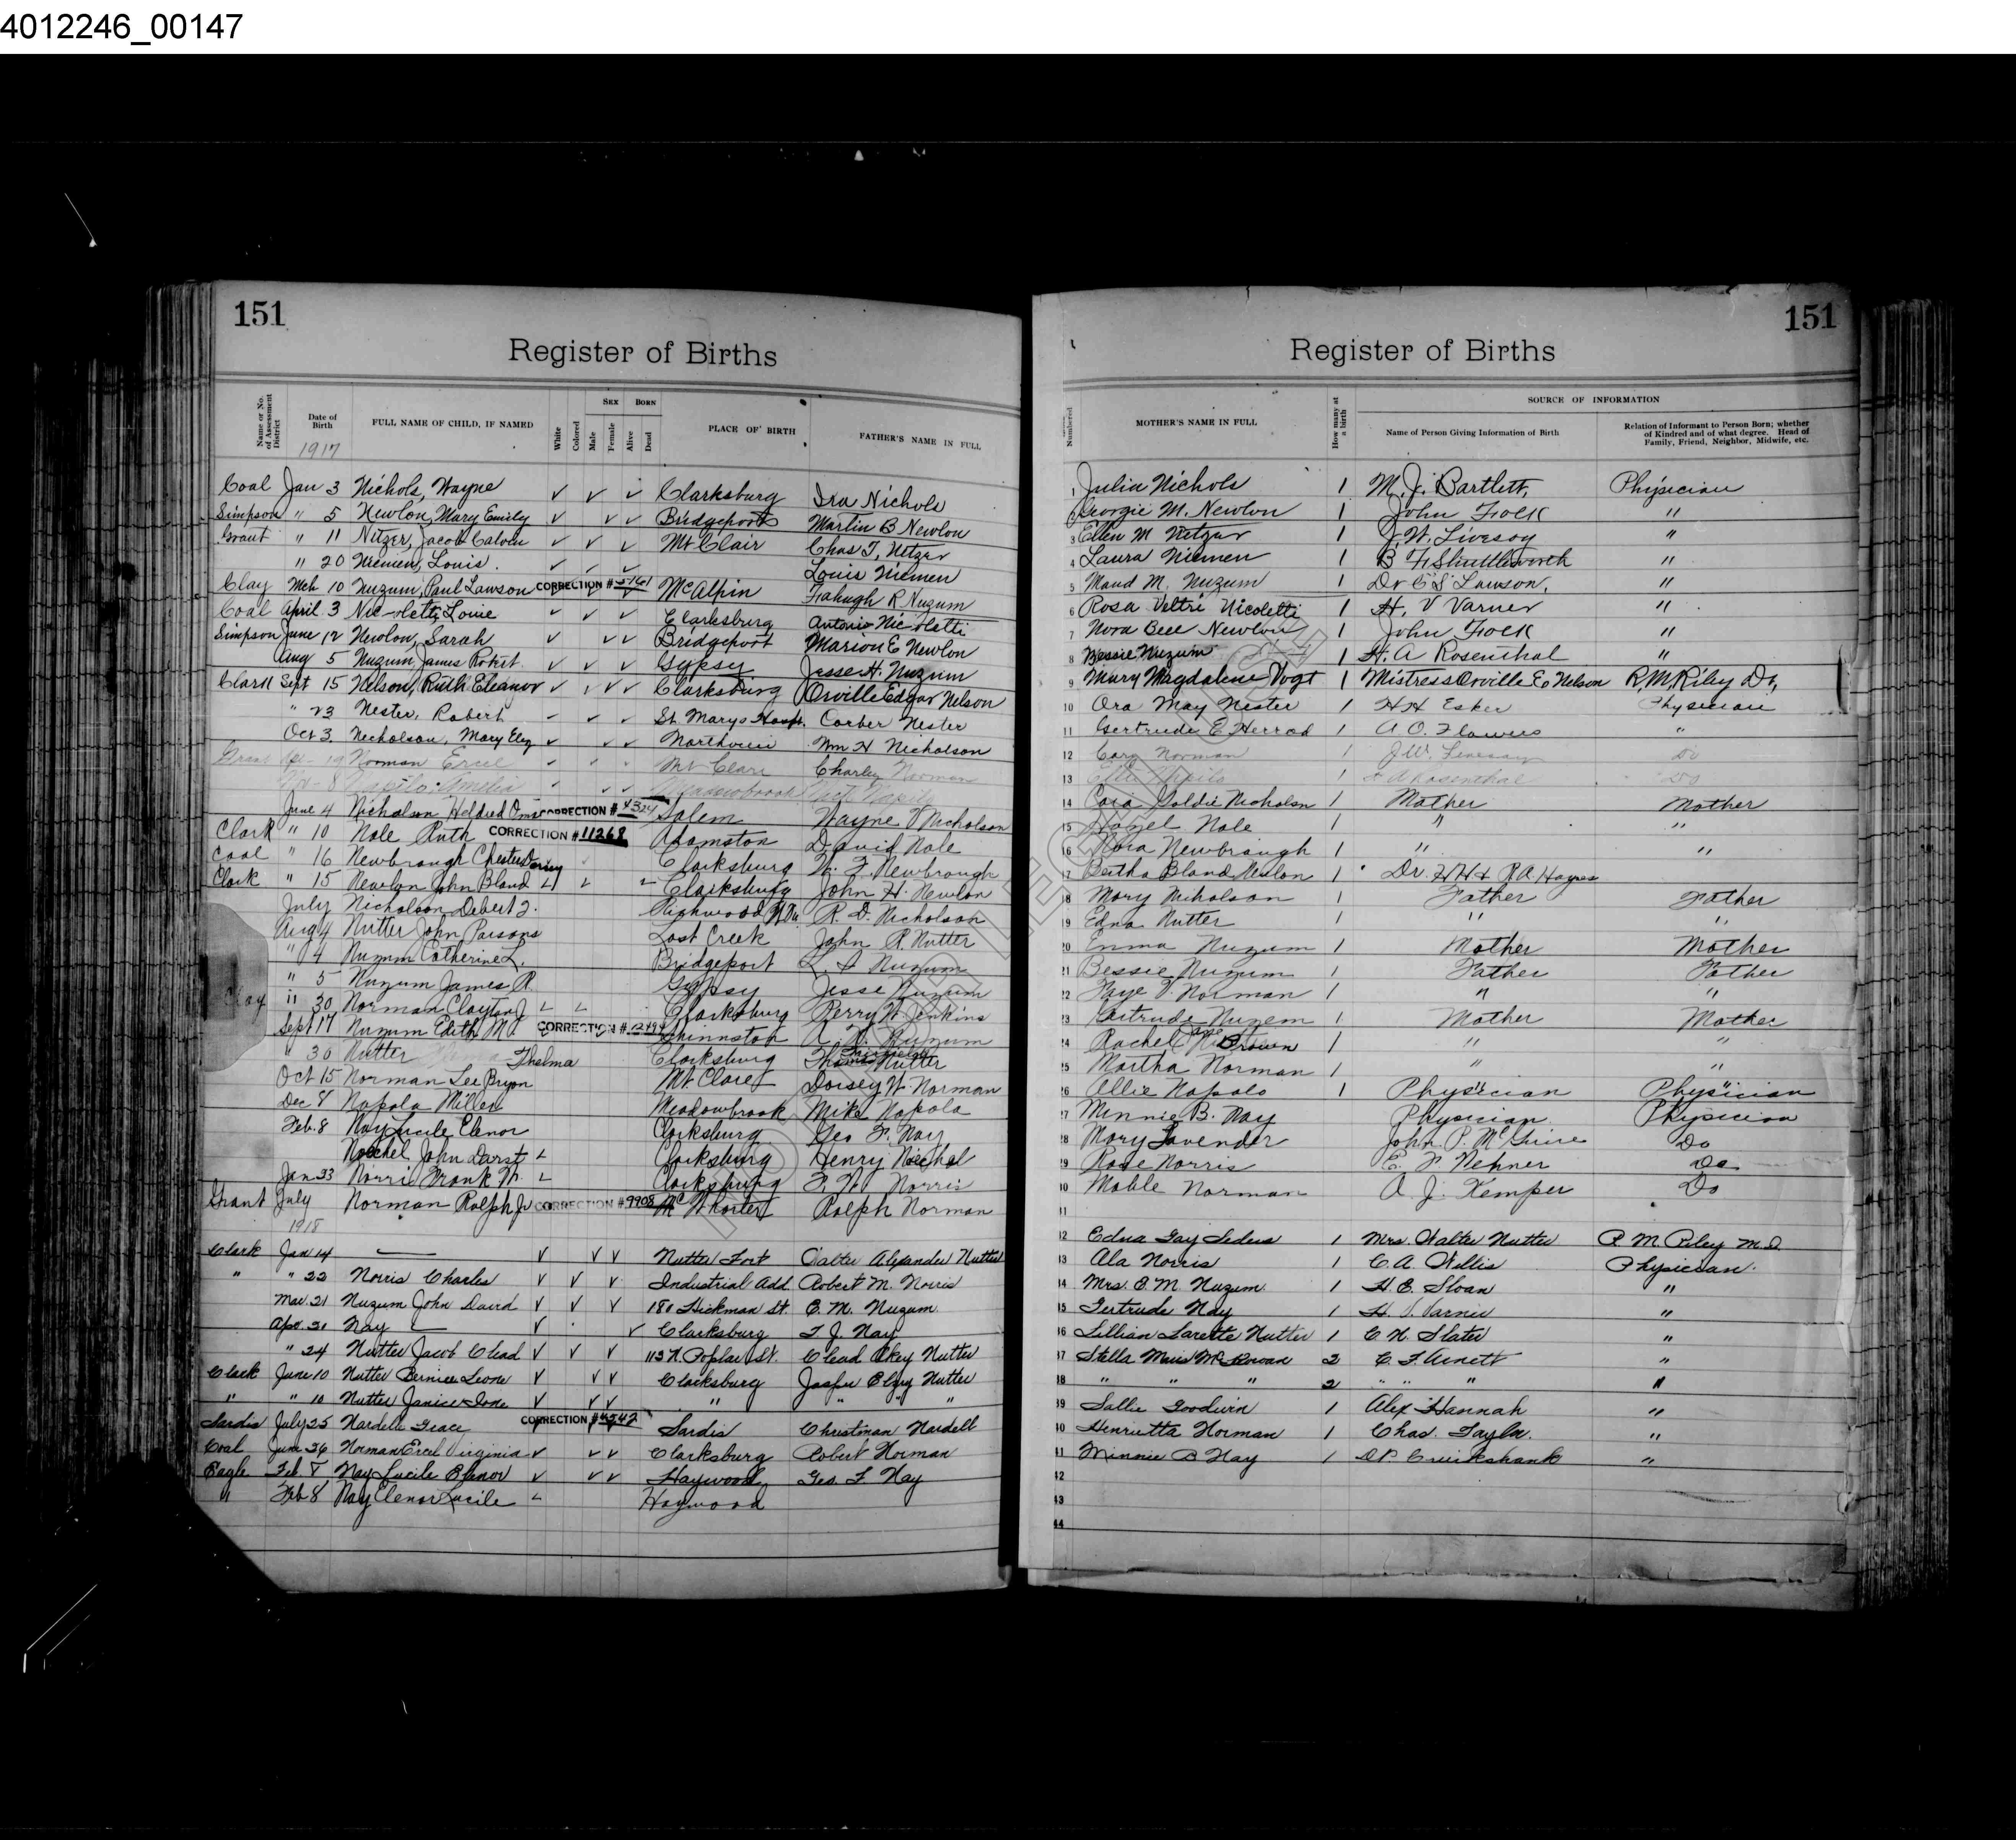 4012246_00147
151
Register of Births
Name or No. of Assessment District
Date of Birth
1917
FULL NAME OF CHILD, IF NAMED
White
Colored
SEX
Male
Female
BORN
Alive
Dead
PLACE OF BIRTH
FATHER'S NAME IN FULL
Coal Jan 3 Nichols, Wayne ✓ ✓ ✓ Clarksburg Ira Nichols
Simpson " 5 Newlon, Mary Emily ✓ ✓ ✓ Bridgeport Martin B Newlon
Grant " 11 Nitzer, Jacob Calvin ✓ ✓ ✓ Mt Clair Chas T, Netzer
" 20 Niemen, Louis. ✓ ✓ ✓ Louis Niemen
Clay Mch 10 Nuzum, Paul Lawson CORRECTION # McAlpin R Nuzum
Coal April 3 Nic-oletti, Louie ✓ ✓ ✓ Clarksburg Antonio Nic-oletti
Simpson June 12 Newlon, Sarah ✓ ✓ ✓ Bridgeport Marion E Newlon
Aug 5 Nuzum, James Robert. ✓ ✓ ✓ Gypsy Jesse H. Nuzum
Clark Sept 15 Nelson, Ruth Eleanor ✓ ✓ ✓ Clarksburg Orville Edgar Nelson
" 23 Nester, Robert ✓ ✓ ✓ St. Marys Hospt. Corber Nester
Oct 3. Nicholson, Mary Eliz ✓ ✓ ✓ Northview Wm H Nicholson
Grant 19 Norman Ercel Mt Clare Charley Norman
Nov - 8 Amelia Meadowbrook
June 4 Nicholson Heldred CORRECTION # Salem Wayne Nicholson
Clark " 10 Nale Ruth CORRECTION # 11268 Adamston David Nale
Coal " 16 Newbrough Chester Clarksburg W. F. Newbrough
Clark " 15 Newlon John Bland Clarksburg John H. Newlon
July Nicholson Delbert J. R. D. Nicholson
Aug 4 Nutter John Parsons Lost Creek John R Nutter
" 4 Nuzum Catherine L. Bridgeport Nuzum
" 5 Nuzum James R. Gypsy Jesse Nuzum
Clay " 30 Norman Clayton J Clarksburg Perry W Jenkins
Sept 17 Nuzum Edith M CORRECTION # Shinnston Nuzum
" 30 Nutter Thelma Clarksburg Thomas Nutter
Oct 15 Norman Lee Bryon Mt. Clare Dorsey W. Norman
Dec 8 Napola Millen Meadowbrook Mike Napola
Feb. 8 Nay Lucile Elenor Clarksburg Geo F. Nay
Noechel John Darst Clarksburg Henry Noechel
Jan 33 Norris Frank W. Clarksburg F. W Norris
Grant July Norman Ralph Jr CORRECTION # 9908 McWhorter Ralph Norman
1918
Clark Jan 14 — ✓ ✓ ✓ Nutter Fort Walter Alexander Nutter
" " 22 Norris Charles ✓ ✓ ✓ Industrial Add. Robert M. Norris
Mar. 21 Nuzum John David ✓ ✓ ✓ 180 Hickman St. E. M. Nuzum.
Apr. 21 Nay ✓ ✓ Clarksburg T. J. Nay
" 24 Nutter Jacob Clead ✓ ✓ ✓ 113 N. Poplar St. Clead Okey Nutter
Clark June 10 Nutter Bernice Leone ✓ ✓ ✓ Clarksburg Jasper Elzy Nutter
" " 10 Nutter Janice Ione ✓ ✓ ✓ " " "
Sardis July 25 Nardell Grace CORRECTION # 4542 Sardis Christman Nardell
Coal June 26 Norman Ercel Virginia ✓ ✓ ✓ Clarksburg Robert Norman
Eagle Feb 8 Nay Lucile Elenor ✓ ✓ ✓ Haywood Geo. F. Nay
" Feb 8 Nay Elenor Lucile Haywood
151
Register of Births
Numbered
MOTHER'S NAME IN FULL
How many at a birth
SOURCE OF INFORMATION
Name of Person Giving Information of Birth
Relation of Informant to Person Born; whether of Kindred and of what degree. Head of Family, Friend, Neighbor, Midwife, etc.
1 Julia Nichols 1 M. J. Bartlett, Physician
Georgie M. Newlon 1 John Folk "
3 Ellen M Netzer 1 J. W. Livesay "
4 Laura Niemen 1 B F. Shuttleworth "
5 Maud M. Nuzum 1 Dr C S Lawson. "
6 Rosa Veltri Nicoletti 1 H. V Varner "
7 Nora Bell Newlon 1 John Folk "
8 Bessie Nuzum 1 H. A Rosenthal "
9 Mary Magdalene Vogt 1 Mistress Orville E. Nelson R, M, Riley Dr,
10 Ora May Nester 1 H H Esker Physician
11 Gertrude E Herrod 1 A O. Flowers "
12 Cora Norman 1 J W. Livesay Do
13 1 H A Rosenthal Do
14 Cora Goldie Nicholson 1 Mother Mother
15 Hazel Nale 1 " "
16 Nora Newbrough 1 " "
17 Bertha Bland Newlon 1 Dr. R A. Haynes
18 Mary Nicholson 1 Father Father
19 Edna Nutter 1 " "
20 Emma Nuzum 1 Mother Mother
21 Bessie Nuzum 1 Father Father
22 Faye V. Norman 1 " "
23 Gertrude Nuzem 1 Mother Mother
24 Rachel Brown 1 " "
25 Martha Norman 1 " "
26 Allie Napolo 1 Physician Physician
27 Minnie B. Nay Physician Physician
28 Mary Lavender John P. McGuire Do
29 Rose Norris E. F Nehner Do
30 Mable Norman A. J. Kemper Do
31
32 Edna Gay Leders 1 Mrs. Walter Nutter R. M. Riley M.D.
33 Ala Norris 1 C. A. Willis Physician.
34 Mrs. E. M. Nuzum 1 H. E. Sloan "
35 Gertrude Nay 1 H. V. Varner "
36 Lillian Laretta Nutter 1 C. N. Slater "
37 Stella Mc 2 C. F. Arnett "
38 " " " 2 " " " "
39 Sallie Goodwin 1 Alex Hannah "
40 Henrietta Norman 1 Chas. Taylor. "
41 Minnie B Nay 1 D P. Cruikshank "
42
43
44